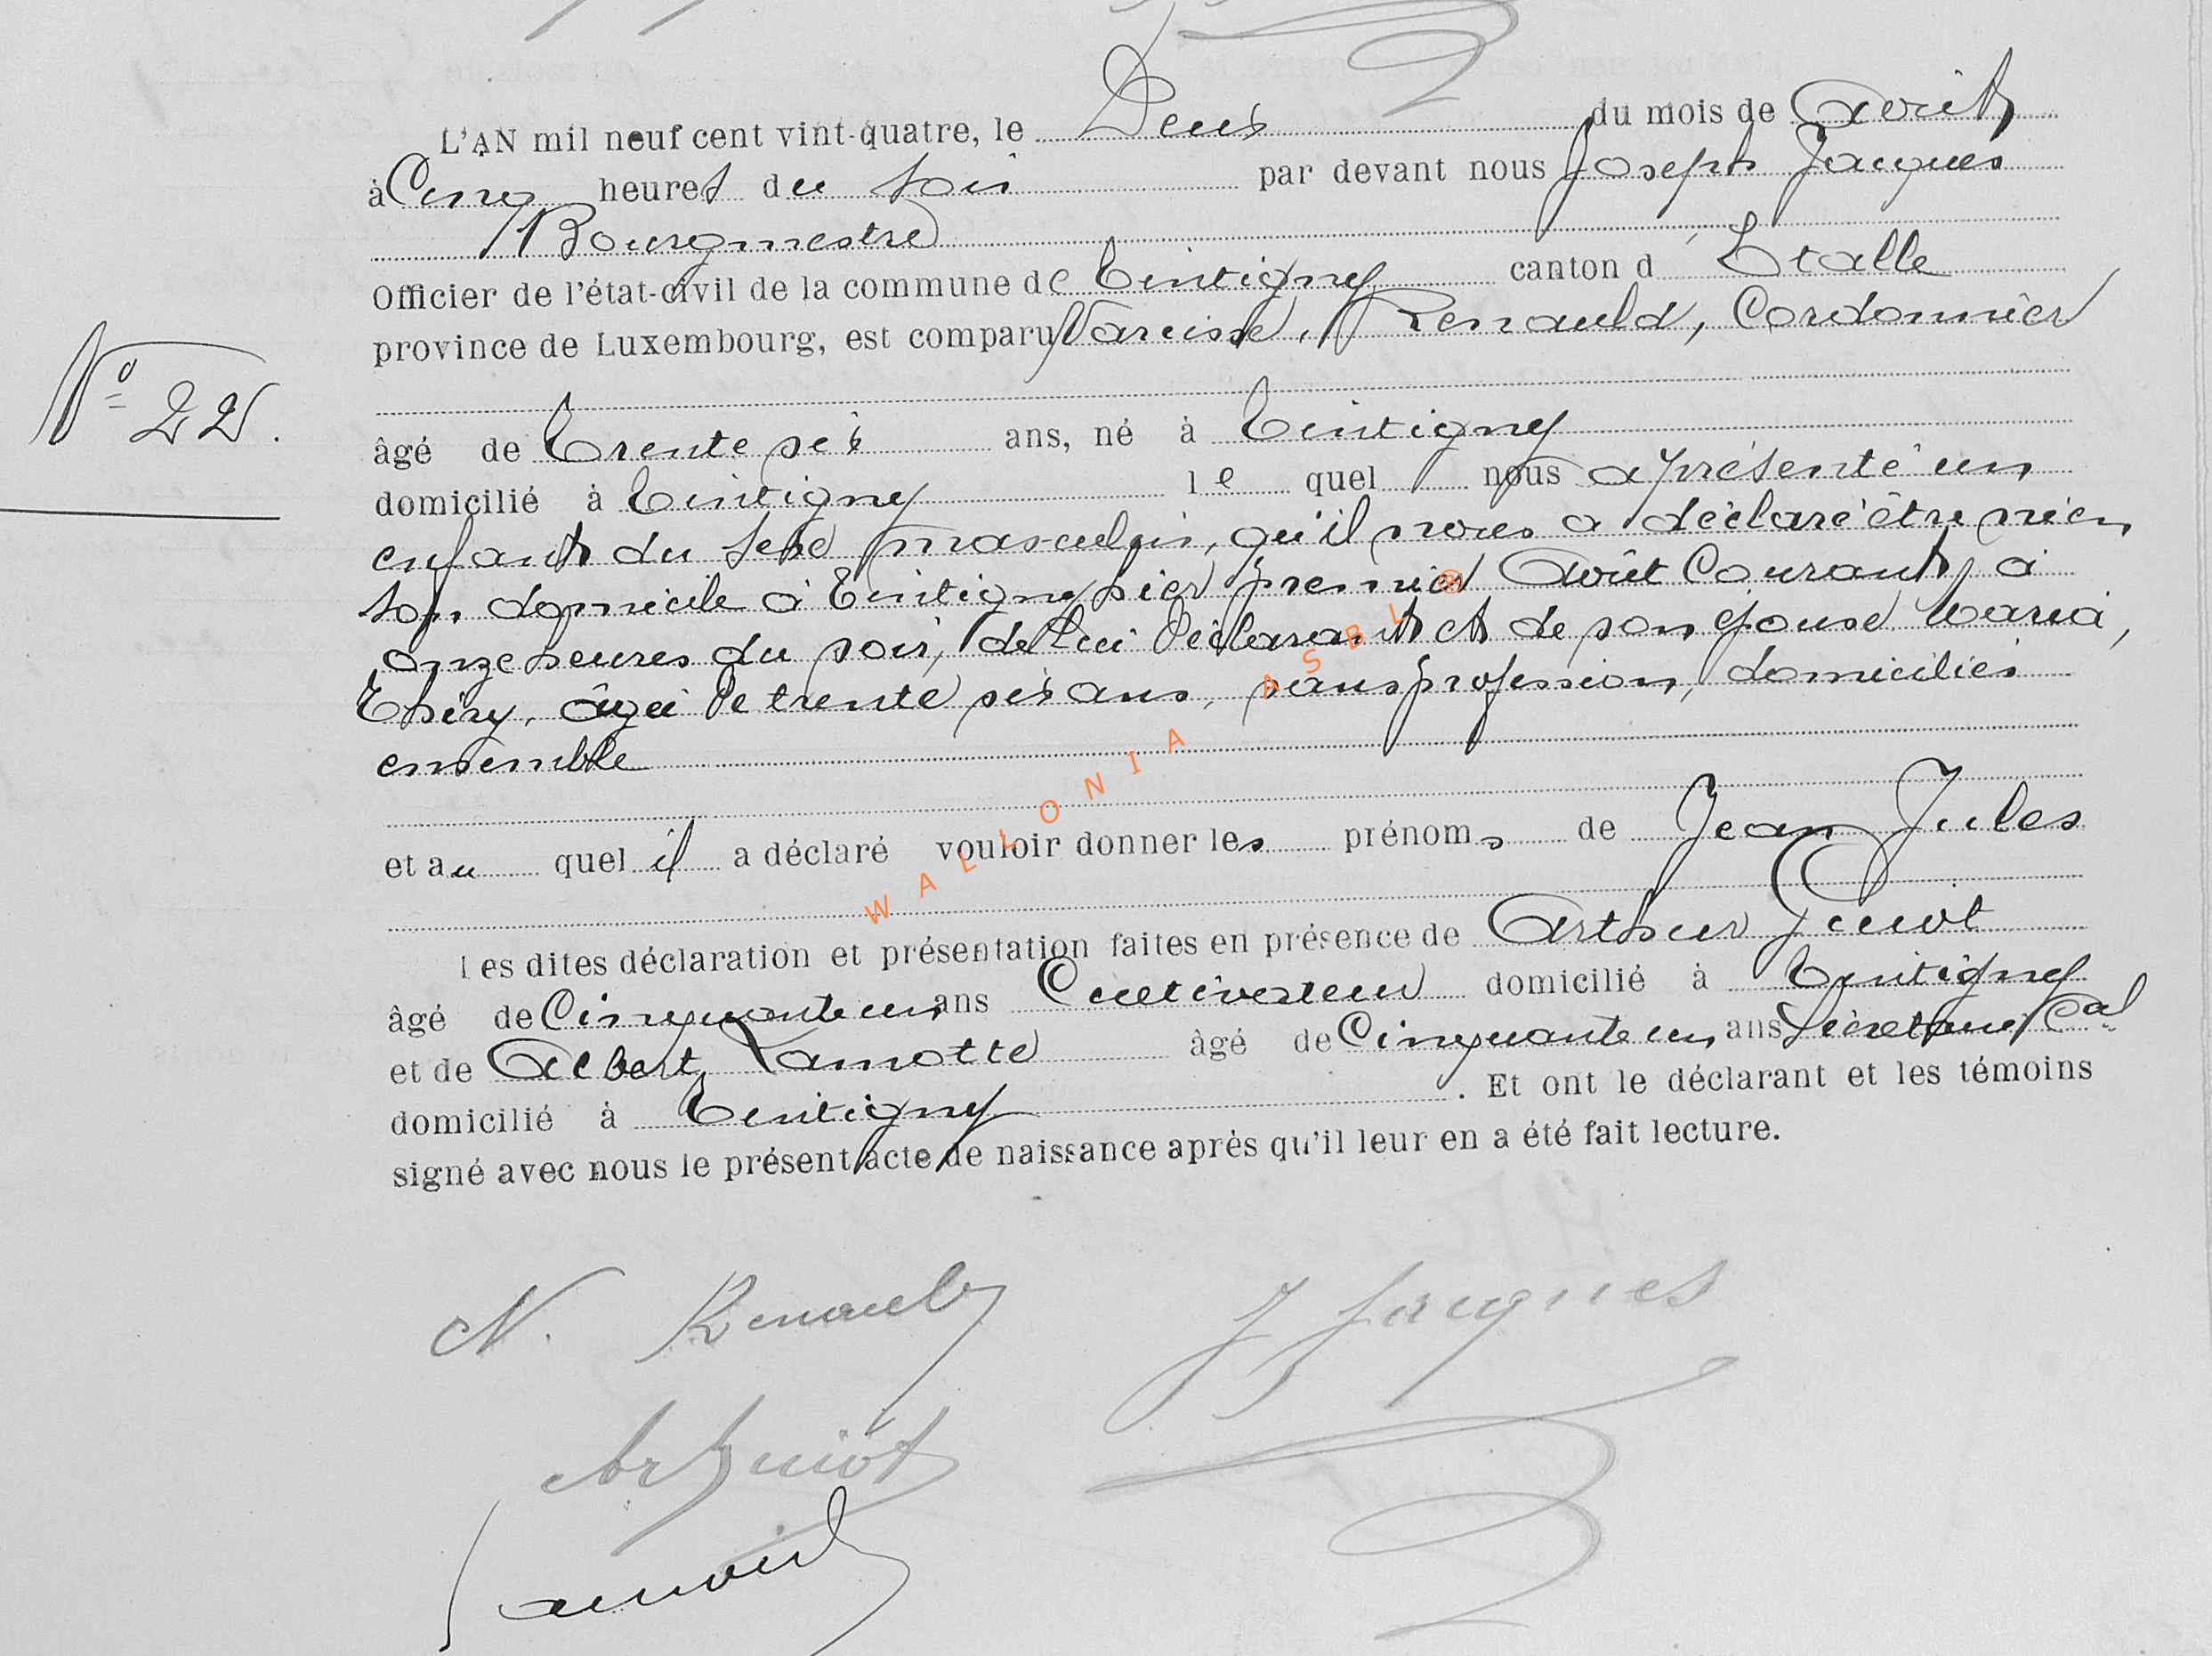 L'AN mil neuf cent vint-quatre, le Deux du mois de Août
à Cinq heures du soir par devant nous Joseph Jacques
Bourgmestre
Officier de l'état-civil de la commune de Tintigny canton d'Etalle
province de Luxembourg, est comparu Narcisse, Renauld, Cordonnier
N° 22.
âgé de Trente six ans, né à Tintigny
domicilié à Tintigny lequel nous a présenté un
enfant du sexe masculin, qu'il nous a déclaré être né en
son domicile à Tintigny hier premier Août Courant, à
onze heures du soir, de Lui Déclarant et de son épouse Maria,
Thiry, âgée de trente six ans, sans profession, domiciliés
ensemble
et au quel il a déclaré vouloir donner les prénoms de Jean Jules
Les dites déclaration et présentation faites en présence de Arthur Guiot
âgé de Cinquante un ans Cultivateur domicilié à Tintigny
et de Albert Lamotte âgé de Cinquante un ans Secrétaire Cal
domicilié à Tintigny. Et ont le déclarant et les témoins
signé avec nous le présent acte de naissance après qu'il leur en a été fait lecture.
N. Renauld J Jacques
Ar Guiot
WALLONIA ASBL ®